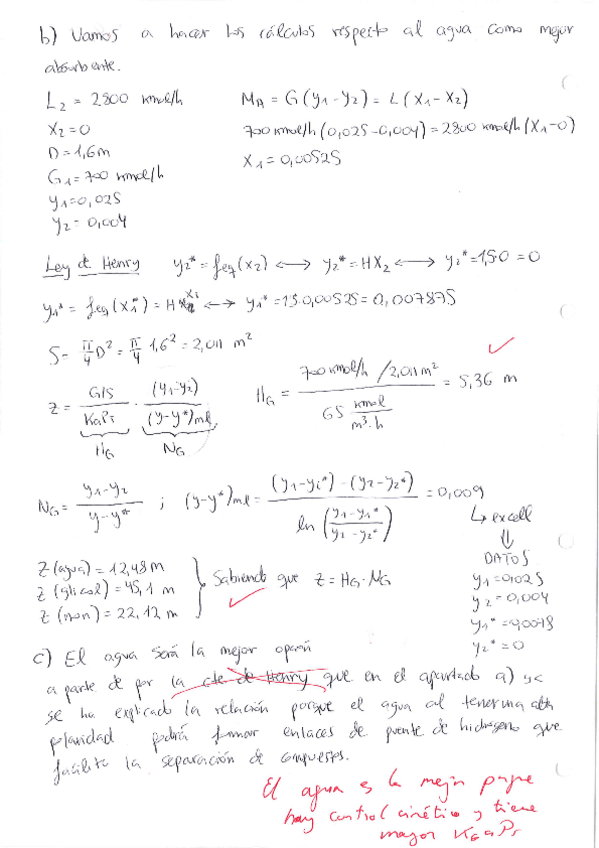 b) Vamos a hacer los cálculos respecto al agua como mejor
absorbente.
L₂ = 2800 kmol/h
X₂ = 0
D = 1,6m
G₁ = 700 kmol/h
y₁ = 0,025
y₂ = 0,004
M_A = G(y₁-y₂) = L(X₁-X₂)
700 kmol/h (0,025-0,004) = 2800 kmol/h (X₁-0)
X₁ = 0,00525
Ley d. Henry y₂* = feq(x₂) ⟷ y₂* = HX₂ ⟷ y₂* = 1,5·0 = 0
y₁* = feq(x₁*) = H x₁ ⟷ y₁* = 1,5·0,00525 = 0,007875
S = π/4 D² = π/4 1,6² = 2,011 m²
Z = (G/S)/(KaPT) · (y₁-y₂)/(y-y*)ml
H_G N_G
H_G = (700 kmol/h / 2,011 m²)/(65 kmol/m³·h) = 5,36 m
N_G = (y₁-y₂)/(y-y*) ; (y-y*)ml = ((y₁-y₁*)-(y₂-y₂*))/(ln((y₁-y₁*)/(y₂-y₂*))) = 0,009
↳ excell
⇓
DATOS
y₁ = 0,025
y₂ = 0,004
y₁* = 0,0078
y₂* = 0
Z (agua) = 12,48 m
Z (glicol) = 45,1 m
Z (mon) = 22,12 m
Sabiendo que Z = H_G · N_G
c) El agua será la mejor opción
a parte de por la cte de Henry que en el apartado a) ya
se ha explicado la relación porque el agua al tener una alta
polaridad podrá formar enlaces de puente de hidrógeno que
facilite la separación de compuestos.
El agua es la mejor porque
hay control cinético y tiene
mayor K_G a P_T